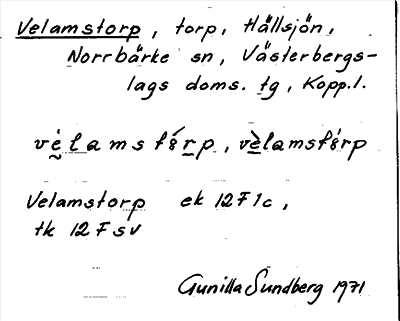 Velamstorp, torp, Hällsjön,
Norrbärke sn, Västerbergs-
lags doms. tg, Kopp.l.
Velamstorp ek 12F1c,
tk 12F sv
Gunilla Sundberg 1971